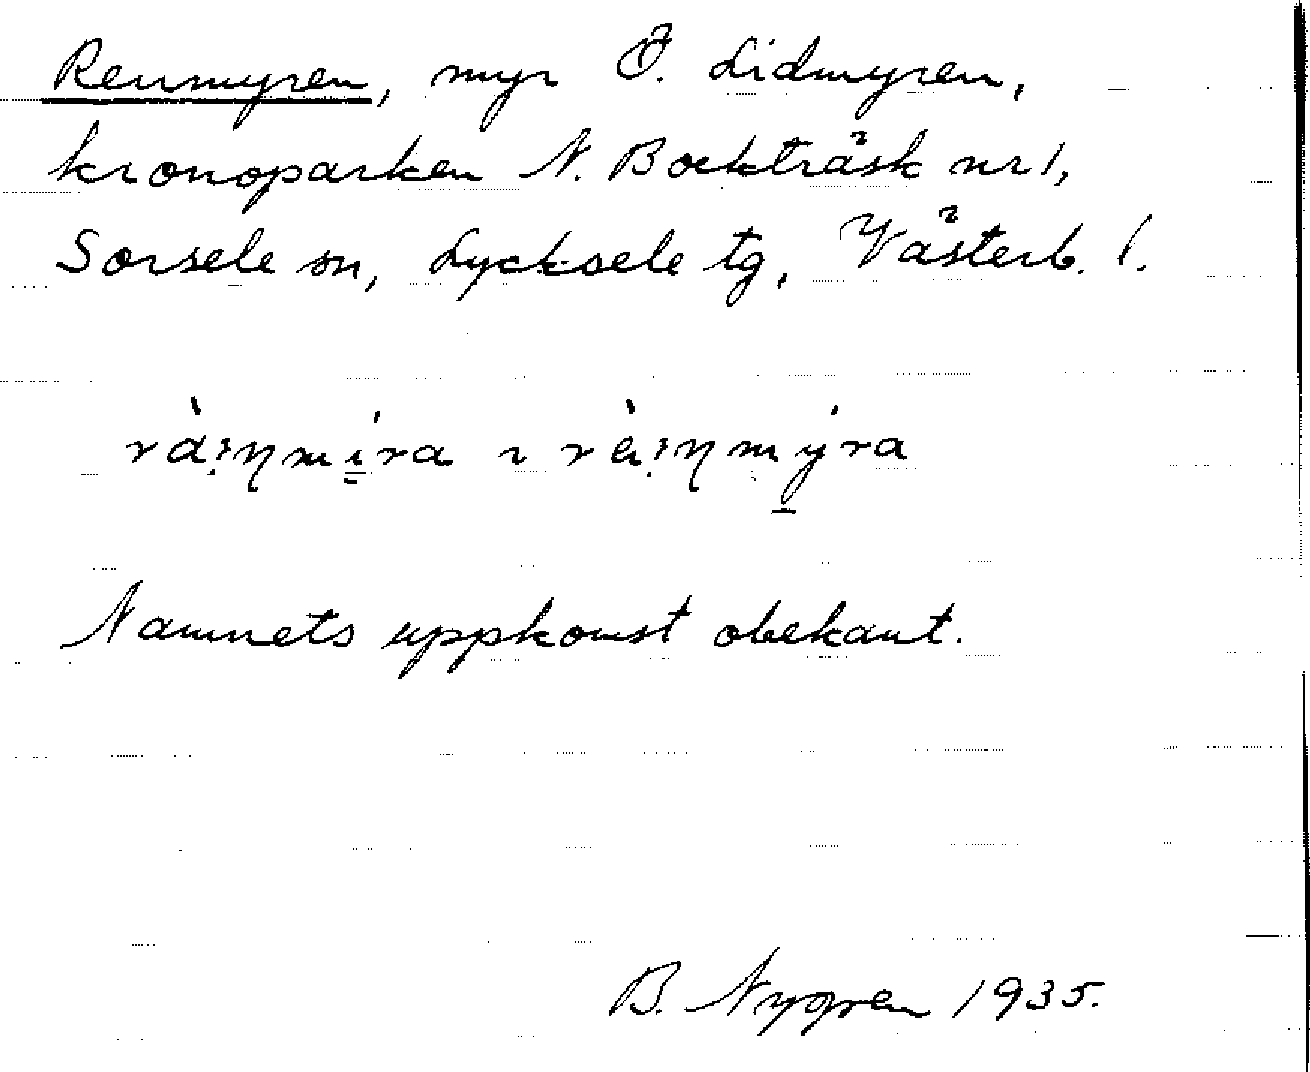 Renmyren, myr Ö. Lidmyren,
kronoparken N. Bocktrãsk nr 1,
Sorsele sn, Lycksele tg, Västerb. l.
Namnets uppkomst obekant.
B. Nygren 1935.